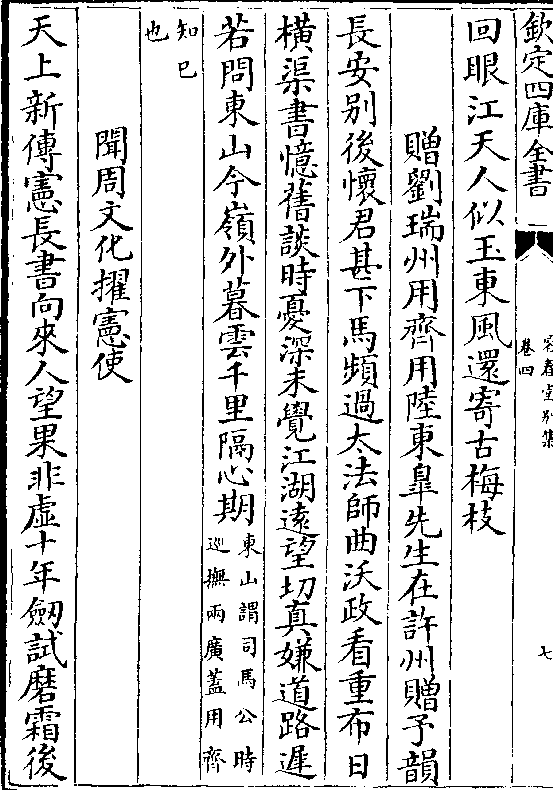 欽定四庫全書
容春堂別集
卷四
七
回眼江天人似玉東風還寄古梅枝
贈劉瑞州用齊用陸東臯先生在許州贈予韻
長安别後懷君甚下馬頻過太法師曲沃政看重布日
橫渠書憶舊談時憂深未覺江湖遠望切真嫌道路遲
若問東山今嶺外暮雲千里隔心期
東山謂司馬公時
廵撫兩廣蓋用齊
知已
也
聞周文化擢憲使
天上新傳憲長書向來人望果非虛十年劒試磨霜後